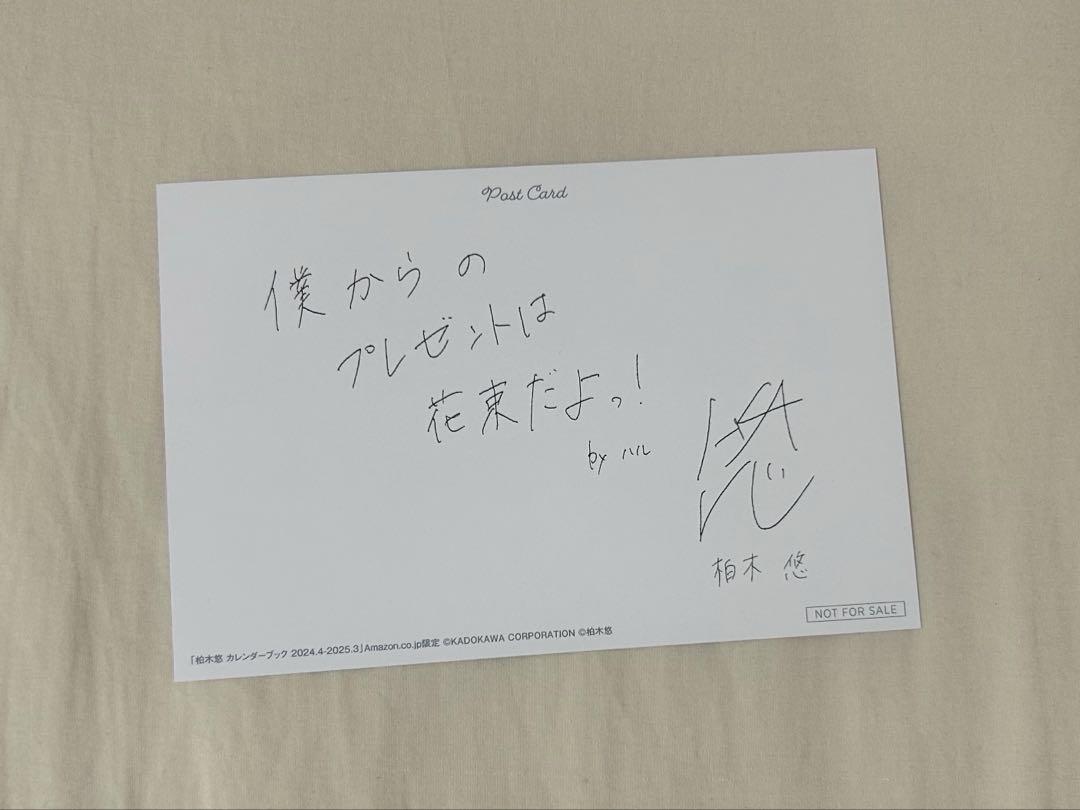 Post Card
僕からの
プレゼントは
花束だよっ!
by ハル
悠
柏木 悠
NOT FOR SALE
「柏木悠 カレンダーブック 2024.4-2025.3」Amazon.co.jp限定 ©KADOKAWA CORPORATION ©柏木悠